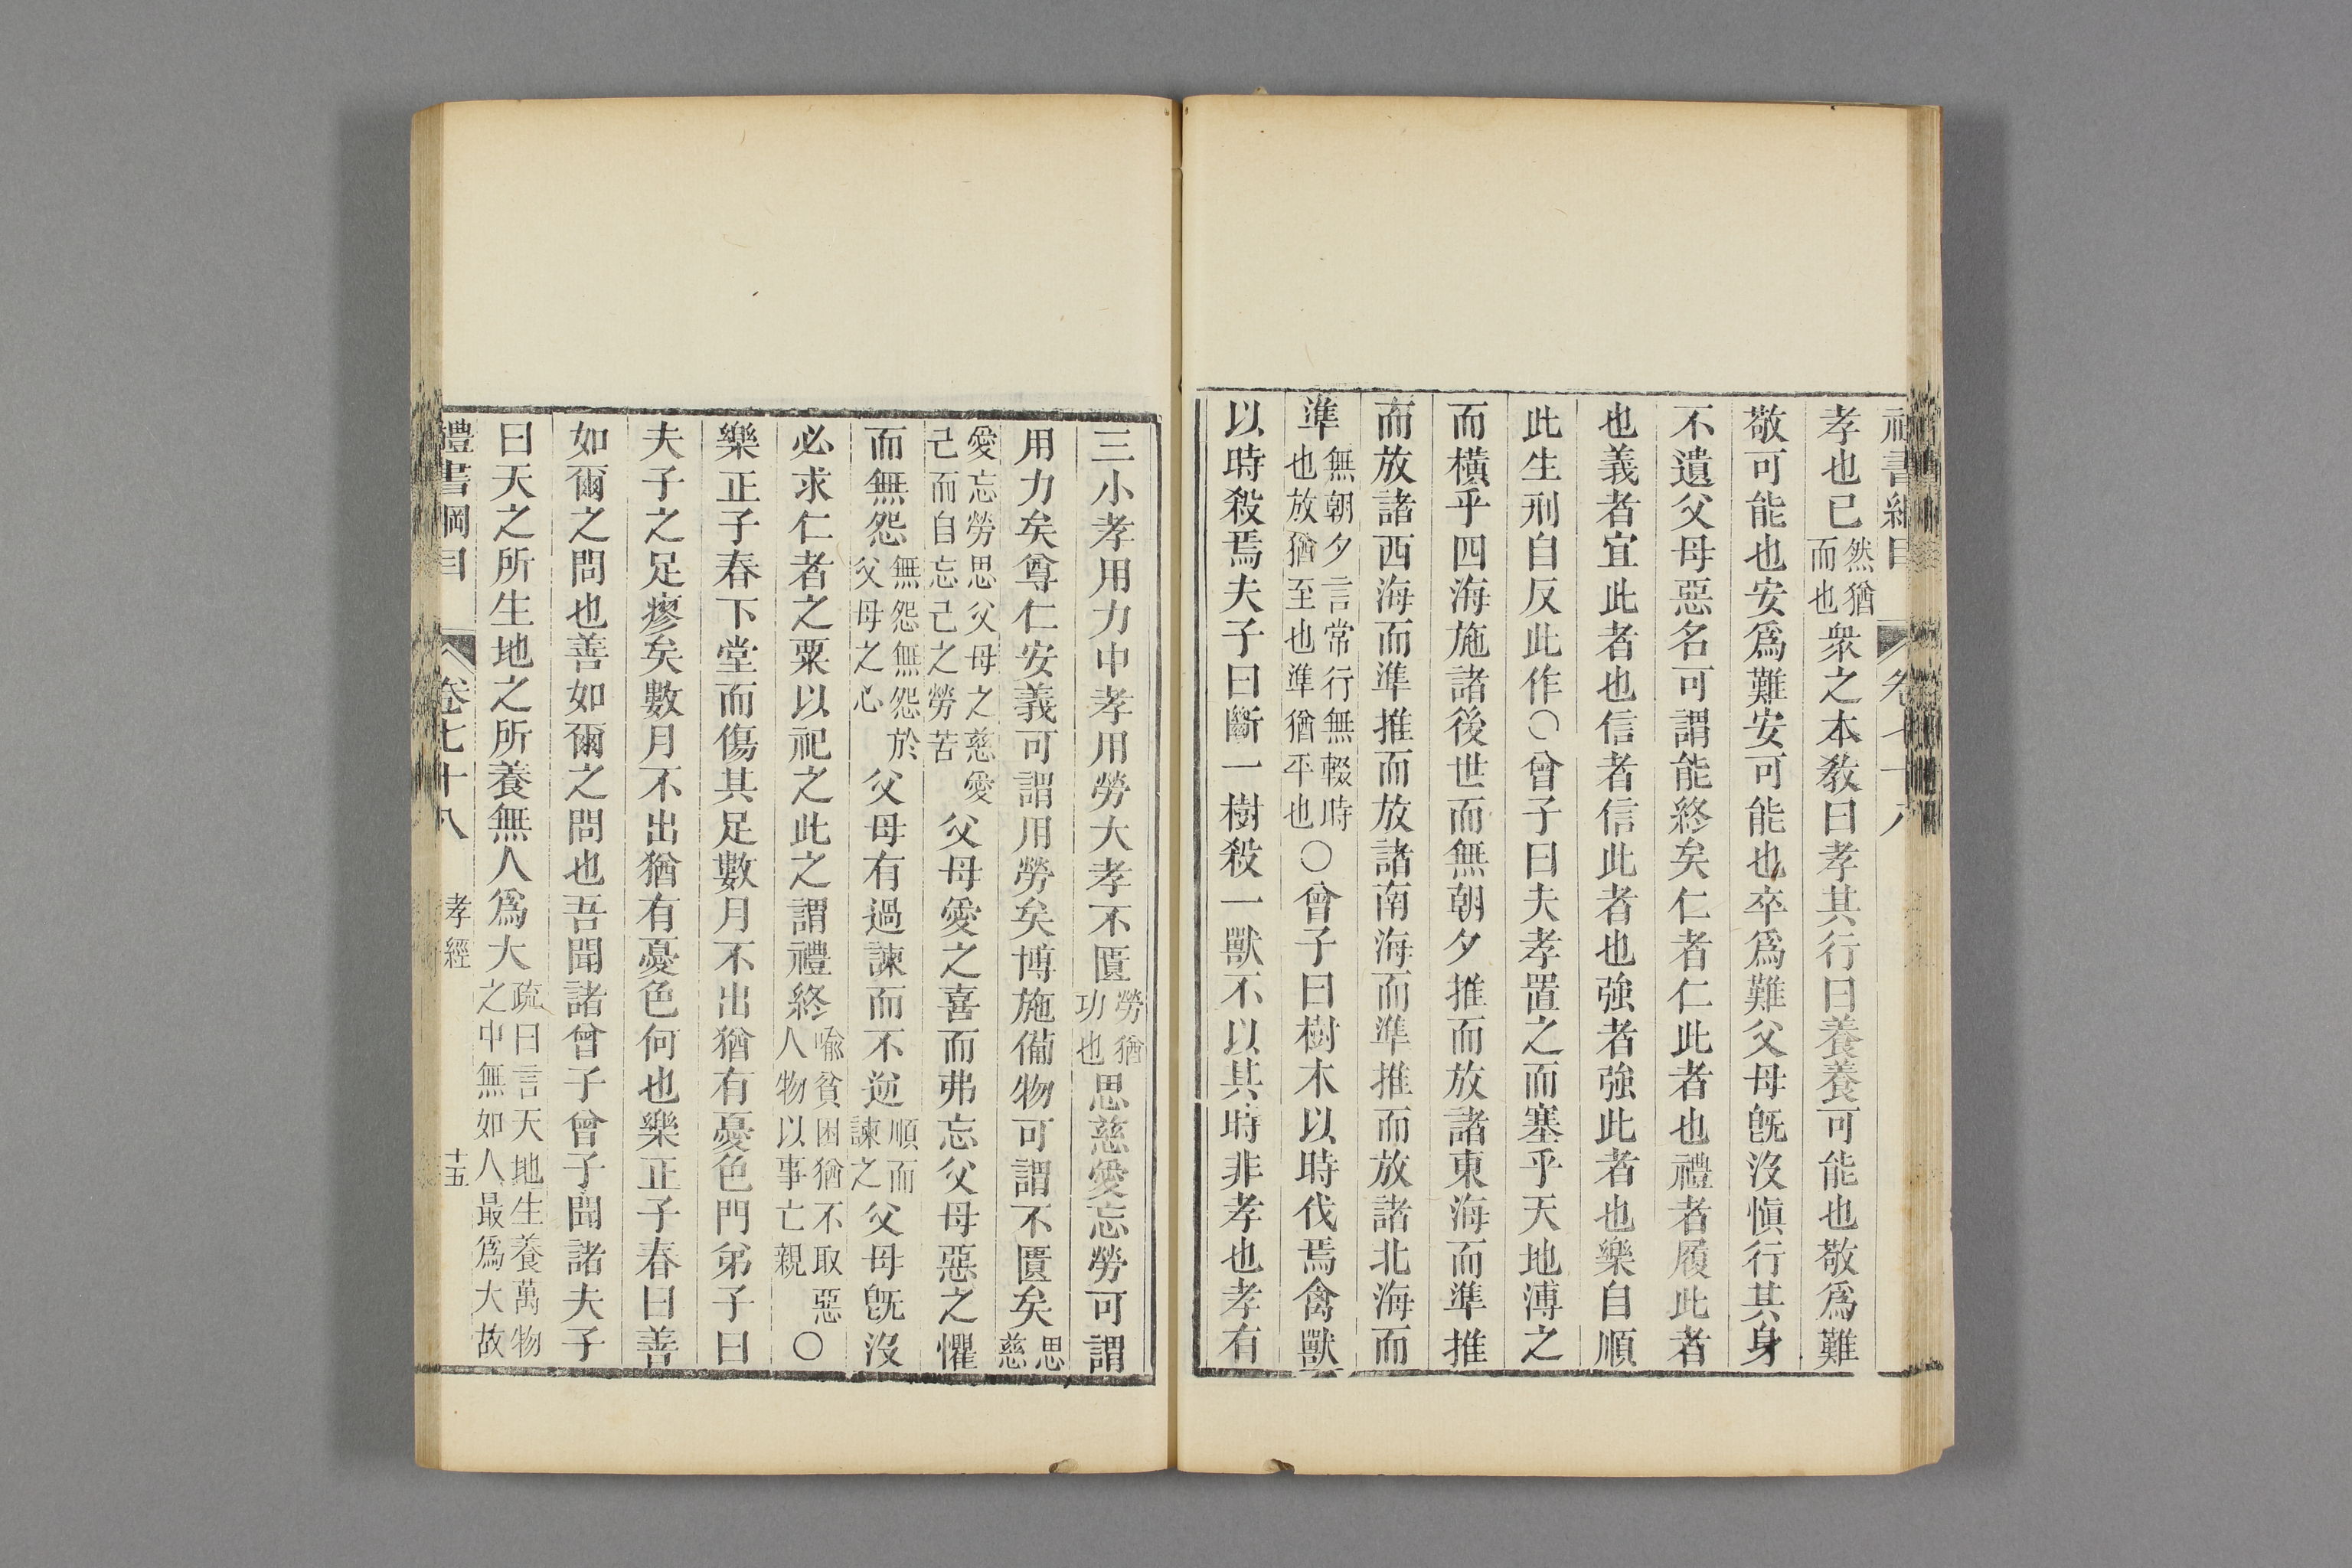 禮書綱目 卷七十八
孝也已然猶而也衆之本教曰孝其行曰養養可能也敬爲難
敬可能也安爲難安可能也卒爲難父母旣沒愼行其身
不遺父母惡名可謂能終矣仁者仁此者也禮者履此者
也義者宜此者也信者信此者也強者強此者也樂自順
此生刑自反此作○曾子曰夫孝置之而塞乎天地溥之
而橫乎四海施諸後世而無朝夕推而放諸東海而準推
而放諸西海而準推而放諸南海而準推而放諸北海而
準無朝夕言常行無輟時也放猶至也準猶平也○曾子曰樹木以時伐焉禽獸
以時殺焉夫子曰斷一樹殺一獸不以其時非孝也孝有
三小孝用力中孝用勞大孝不匱勞猶功也思慈愛忘勞可謂
用力矣尊仁安義可謂用勞矣博施備物可謂不匱矣思慈
愛忘勞思父母之慈愛己而自忘己之勞苦父母愛之喜而弗忘父母惡之懼
而無怨無怨無怨於父母之心父母有過諫而不逆順而諫之父母旣沒
必求仁者之粟以祀之此之謂禮終喩貧困猶不取惡人物以事亡親○
樂正子春下堂而傷其足數月不出猶有憂色門弟子曰
夫子之足瘳矣數月不出猶有憂色何也樂正子春曰善
如爾之問也善如爾之問也吾聞諸曾子曾子聞諸夫子
曰天之所生地之所養無人爲大疏曰言天地生養萬物之中無如人最爲大故
禮書綱目 卷七十八 孝經 十五